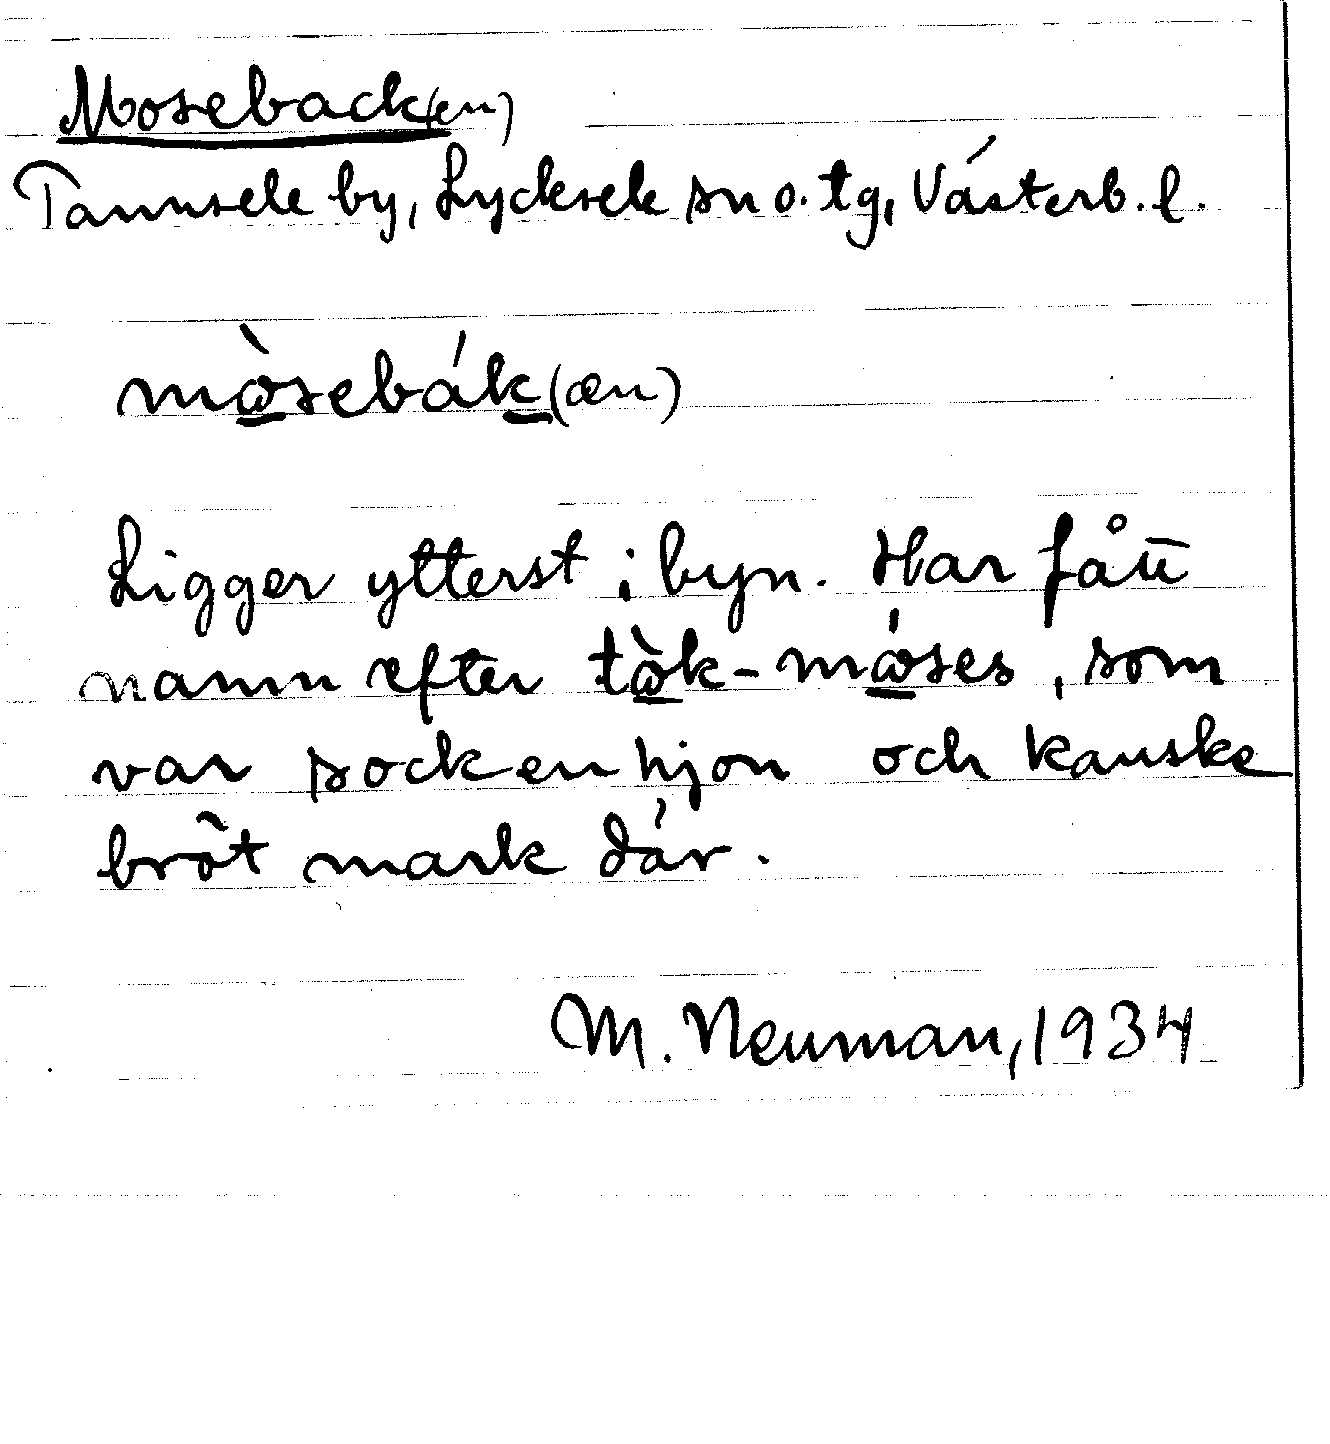 Moseback(en)
Tannsele by, Lycksele sn o. tg, Västerb. l.
mòsebák(æn)
Ligger ytterst i byn. Har fått
namn efter tòk-móses, som
var sockenhjon och kanske
bröt mark där.
M. Neuman, 1934